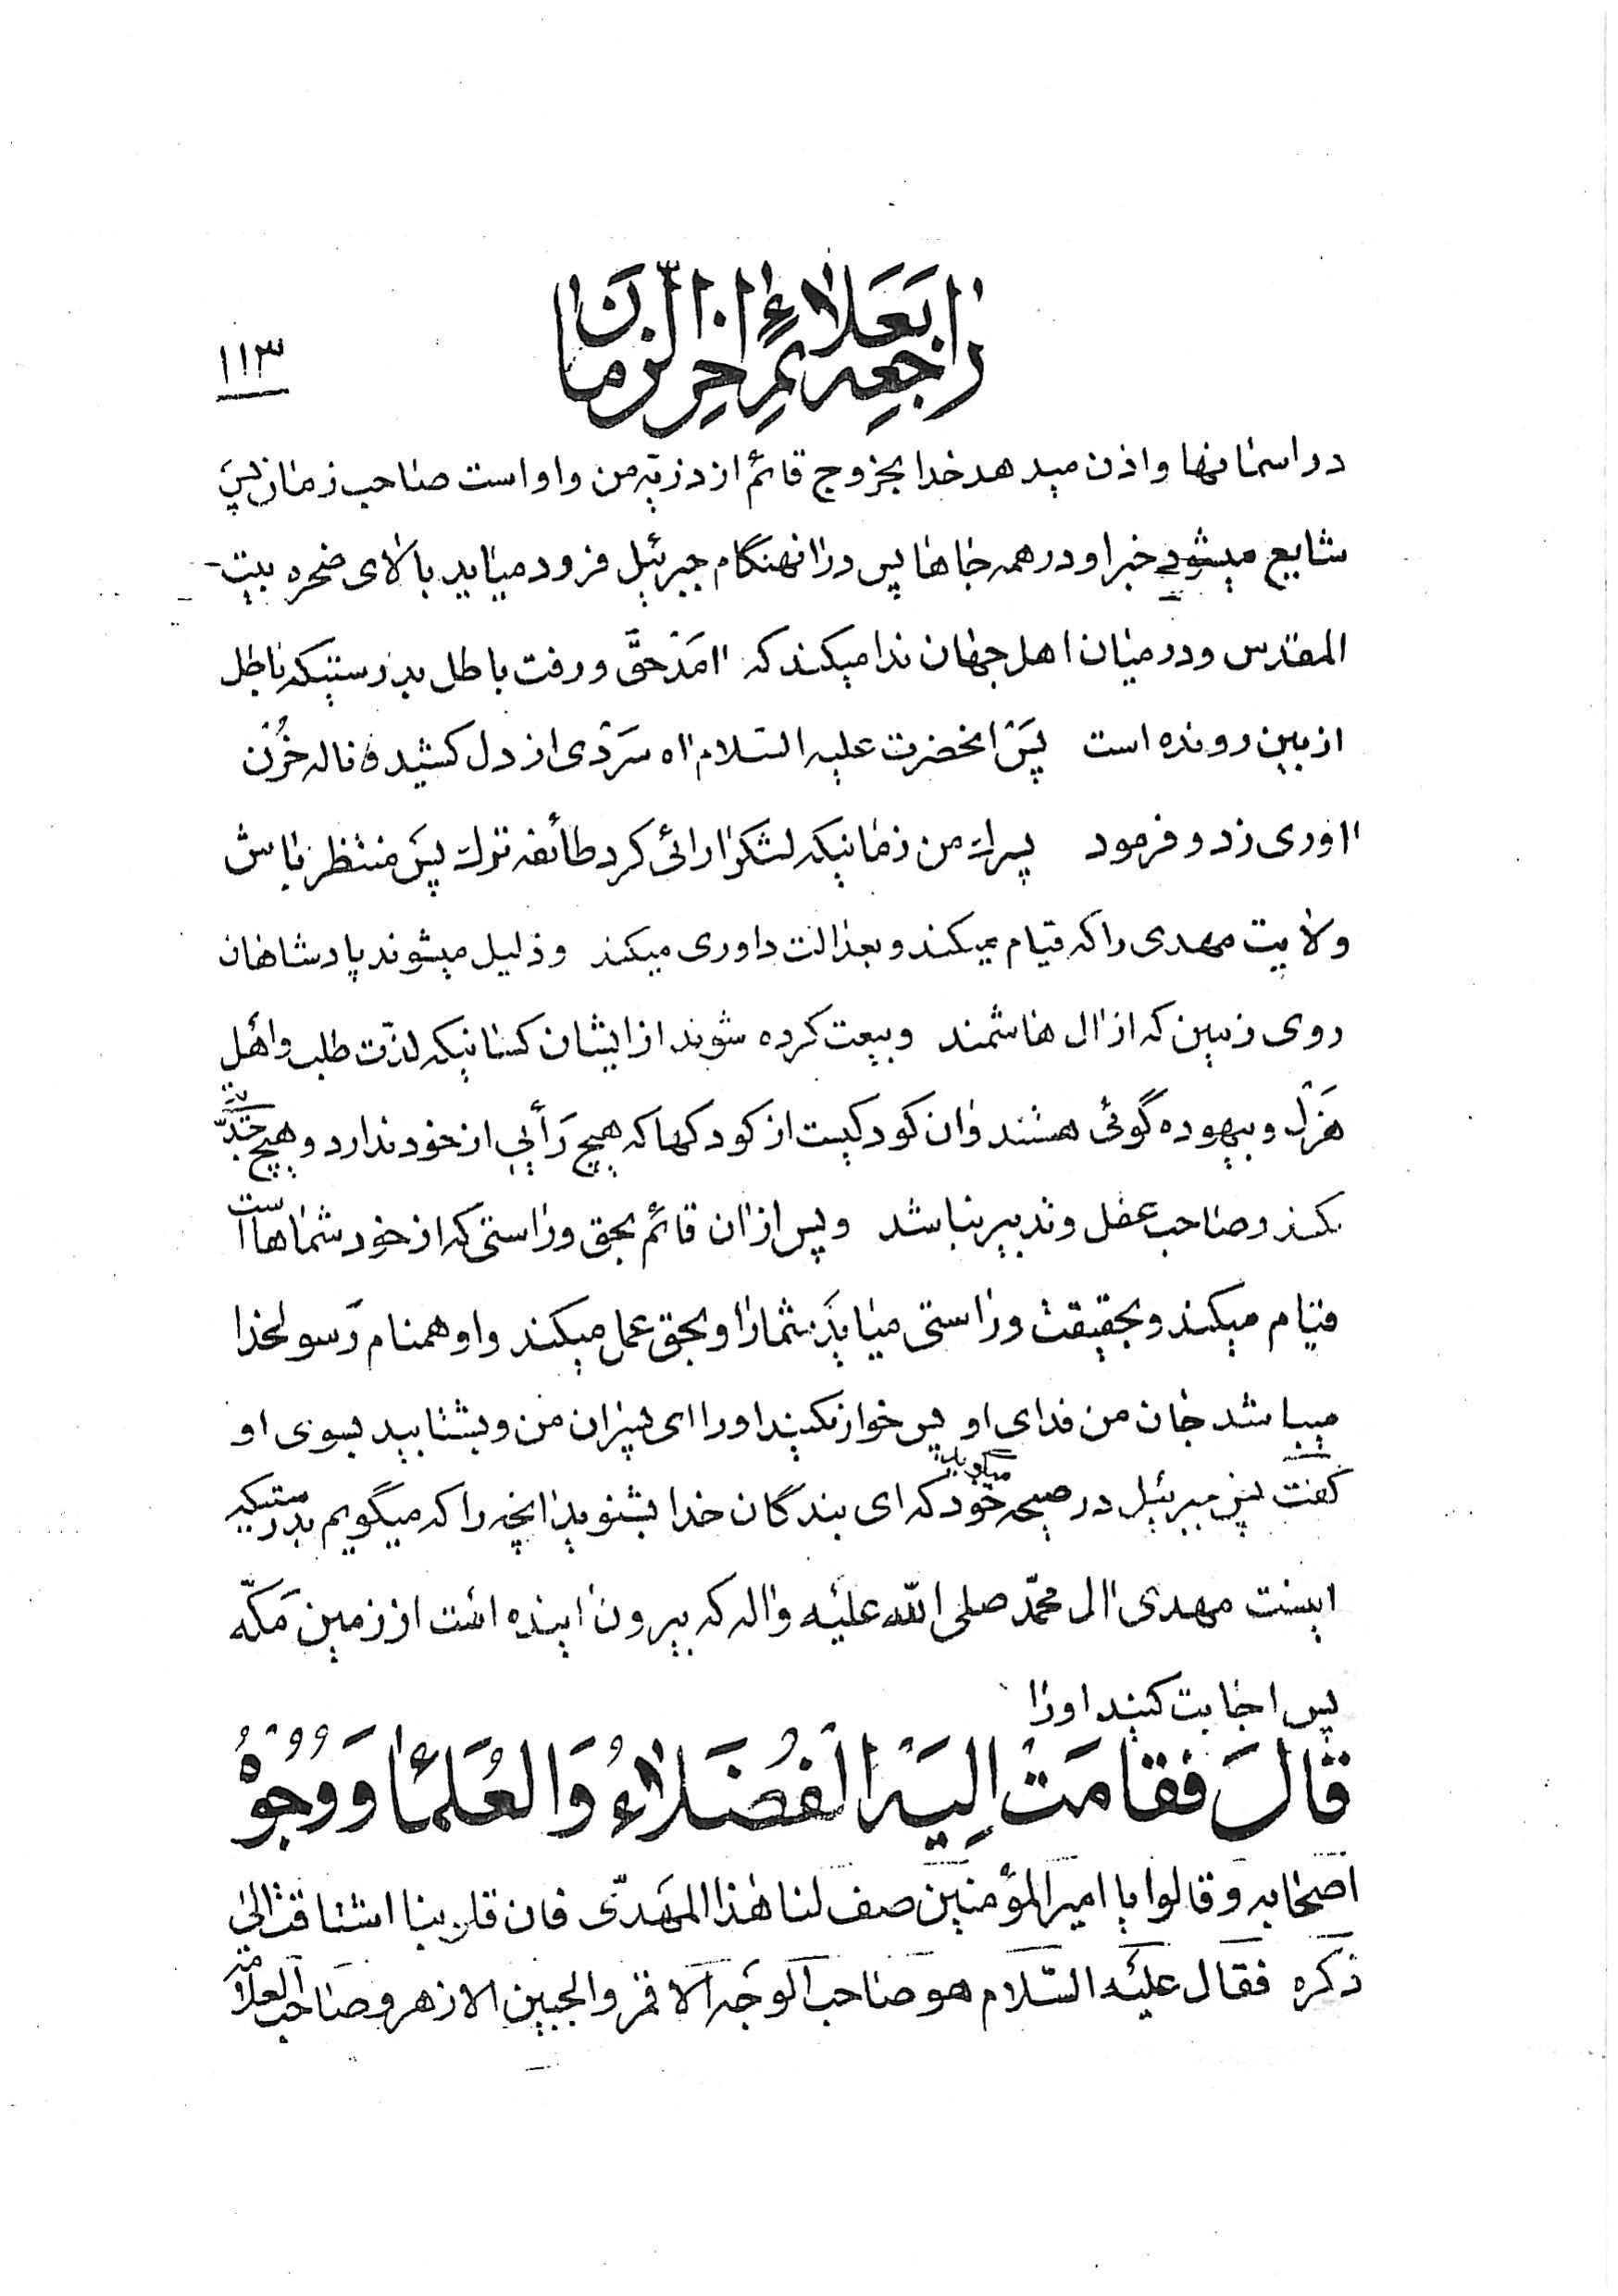 راجعه بعلائم اخر الزمان
۱۱۳
در اسمانها و اذن میدهد خدا بخروج قائم از ذریّه من و او است صاحب زمان پس
شایع میشود خبر او در همه جاها پس در انهنگام جبرئیل فرود میاید بالای صخره بیت
المقدس و در میان اهل جهان ندا میکند که امد حقّ و رفت باطل بدرستیکه باطل
از بین رونده است پس انحضرت علیه السّلام اه سردی از دل کشید و ناله حزن
اوری زد و فرمود پسرک من زمانیکه لشکر ارائی کرد طائفه ترک پس منتظر باش
ولایت مهدی را که قیام میکند و بعدالت داوری میکند و ذلیل میشوند پادشاهان
روی زمین که از ال هاشمند و بیعت کرده شوند از ایشان کسانیکه لذّت طلب و اهل
هزل و بیهوده گوئی هستند و ان کودکیست از کودکها که هیچ رأیی از خود ندارد و هیچ جدّیّت
نکند و صاحب عقل و تدبیر نباشد و پس از ان قائم بحق و راستی که از خود شماها است
قیام میکند و بحقیقت و راستی میاید شما را و بحق عمل میکند و او همنام رسولخدا
میباشد جان من فدای او پس خوار نکنید او را ای پسران من و بشتابید بسوی او
گفت پس جبرئیل در صیحه خود میگوید که ای بندگان خدا بشنوید انچه را که میگویم بدرستیکه
اینست مهدی ال محمّد صلی الله علیه و اله که بیرون اینده است از زمین مکّه
پس اجابت کنید او را
قالَ فَقامَتْ اِلیَهِ الفُضَلاءُ وَالعُلَمٰا وَ وُجُوْهُ
اصحابه و قالوا یا امیر المؤمنین صف لنا هذا المهدّی فان قلوبنا اشتاقت الی
ذکره فقال علیه السّلام هو صاحب الوجه الاقمر والجبین الازهر و صاحب العلامة